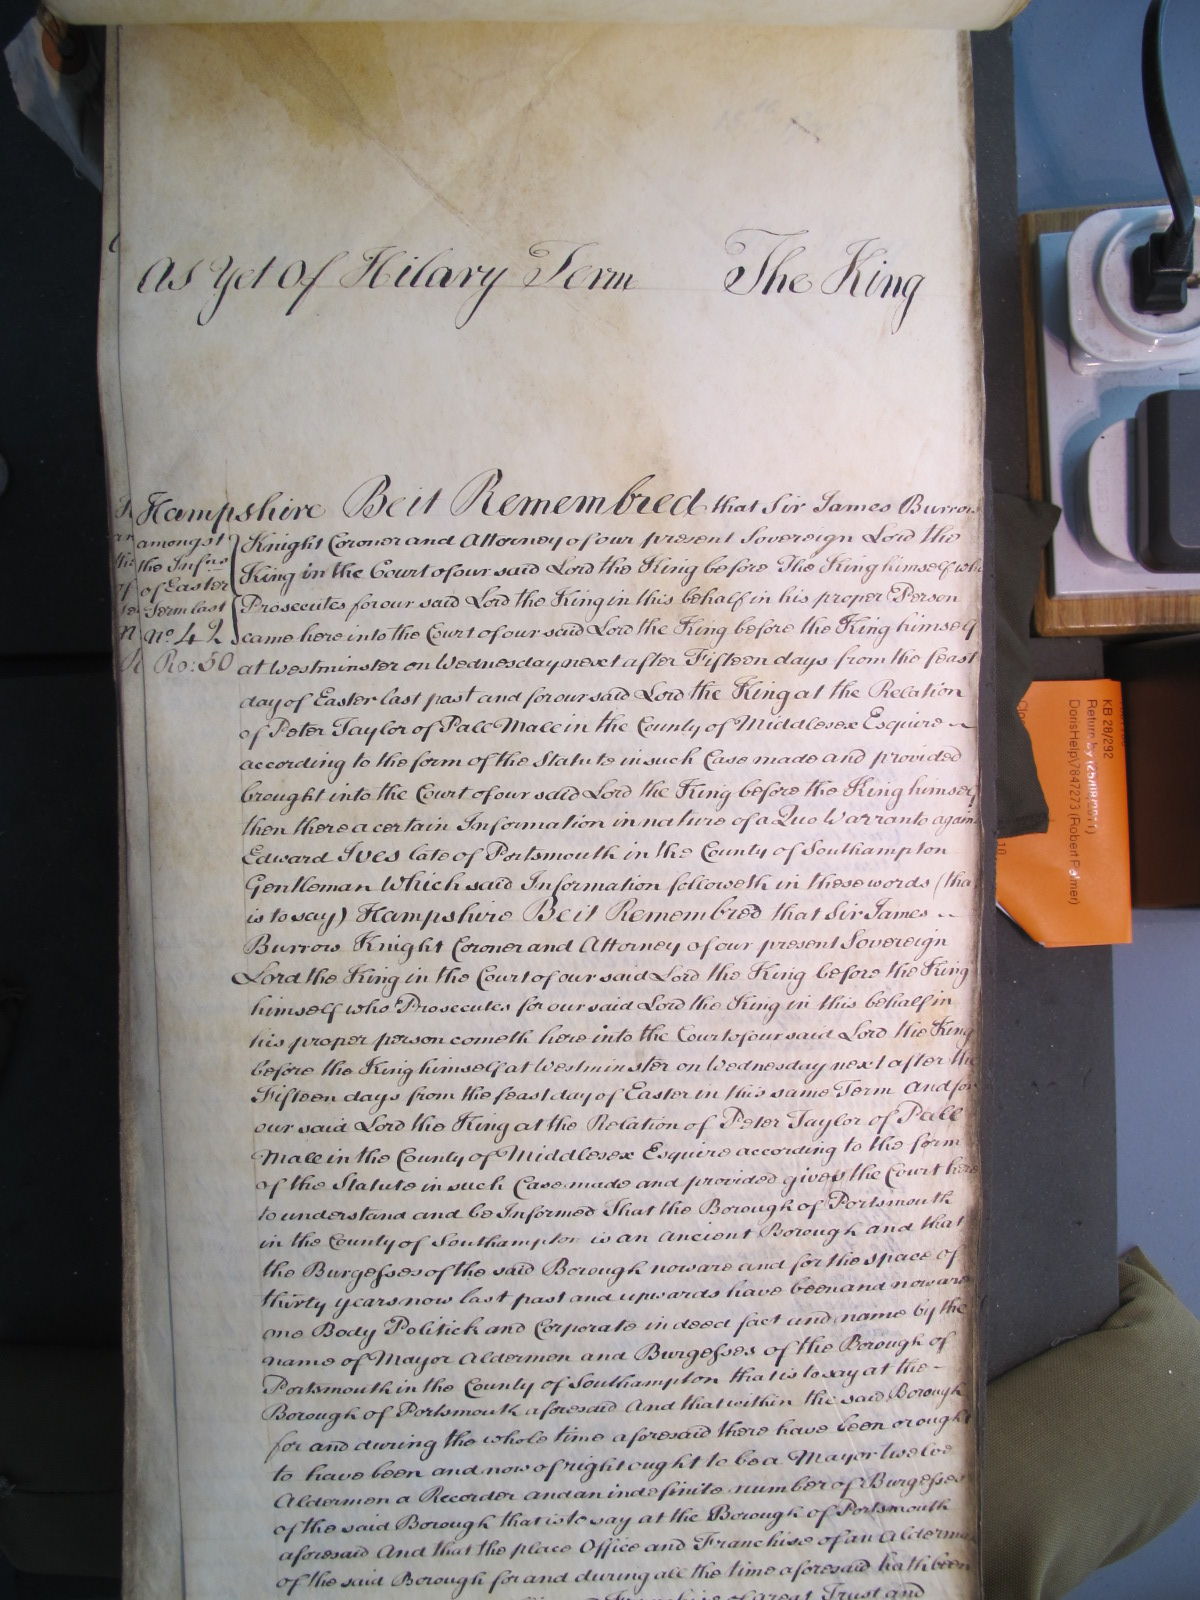 As Yet Of Hilary Term The King
Hampshire Be it Remembred that Sir James Burrow
amongst
the Infns
of Easter
Term last
no. 42
Ro: 50
Knight Coroner and Attorney of our present Sovereign Lord the
King in the Court of our said Lord the King before The King himself who
Prosecutes for our said Lord the King in this behalf in his proper Person
came here into the Court of our said Lord the King before the King himself
at Westminster on Wednesday next after Fifteen days from the feast
day of Easter last past and for our said Lord the King at the Relation
of Peter Taylor of Pall Mall in the County of Middlesex Esquire
according to the form of the Statute in such Case made and provided
brought into the Court of our said Lord the King before the King himself
then there a certain Information in nature of a Quo Warranto again
Edward Ives late of Portsmouth in the County of Southampton
Gentleman Which said Information followeth in these words (tha
is to say) Hampshire Be it Remembred that Sir James
Burrow Knight Coroner and Attorney of our present Sovereign
Lord the King in the Court of our said Lord the King before the King
himself who Prosecutes for our said Lord the King in this behalf in
his proper person cometh here into the Court of our said Lord the King
before the King himself at Westminster on Wednesday next after the
Fifteen days from the feast day of Easter in this same Term And for
our said Lord the King at the Relation of Peter Taylor of Pall
Mall in the County of Middlesex Esquire according to the form
of the Statute in such Case made and provided gives the Court here
to understand and be Informed That the Borough of Portsmouth
in the County of Southampton is an Ancient Borough and that
the Burgesses of the said Borough now are and for the space of
thirty years now last past and upwards have been and now are
one Body Politick and Corporate in deed fact and name by the
name of Mayor Aldermen and Burgesses of the Borough of
Portsmouth in the County of Southampton that is to say at the
Borough of Portsmouth aforesaid And that within the said Borough
for and during the whole time aforesaid there have been or ought
to have been and now of right ought to be a Mayor twelve
Aldermen a Recorder and an indefinite number of Burgesses
of the said Borough that is to say at the Borough of Portsmouth
aforesaid And that the place Office and Franchise of an Alderma
of the said Borough for and during all the time aforesaid hath been
Franchise of great Trust and
KB 28/292
Return by (25/08/2011)
DorisHelp\7847273 (Robert Palmer)